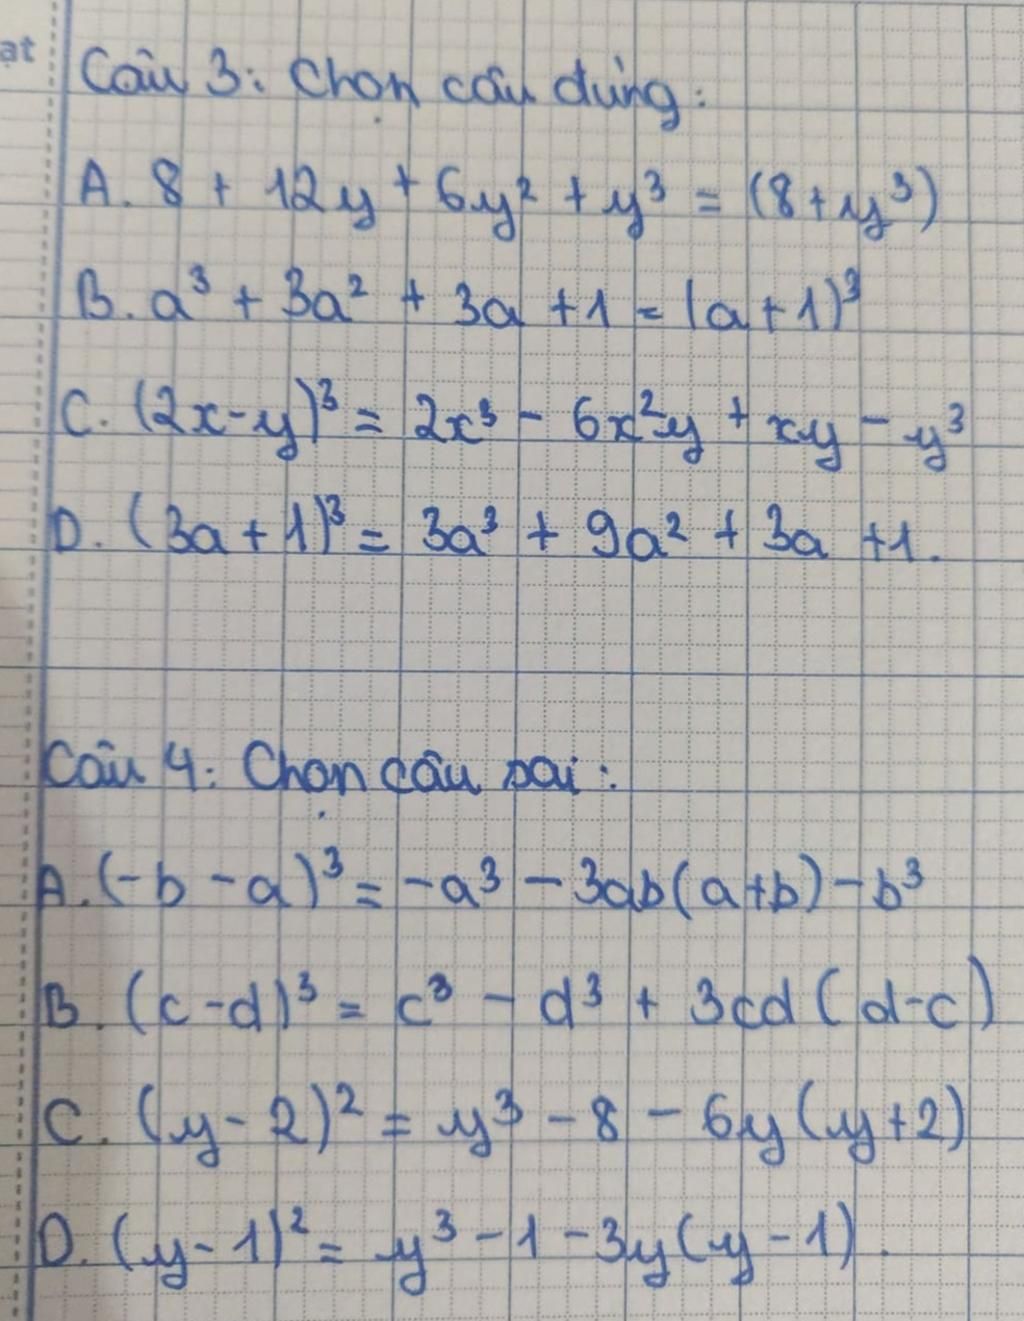 ạt
Câu 3: Chọn câu đúng:
A. 8 + 12y + 6y² + y³ = (8+y³)
B. a³ + 3a² + 3a + 1 = (a+1)³
C. (2x-y)³ = 2x³ - 6x²y + xy - y³
D. (3a+1)³ = 3a³ + 9a² + 3a + 1.
Câu 4: Chọn câu sai:
A. (-b - a)³ = -a³ - 3ab(a+b) - b³
B. (c-d)³ = c³ - d³ + 3cd(d-c)
C. (y-2)² = y³ - 8 - 6y(y+2)
D. (y-1)² = y³ - 1 - 3y(y-1).